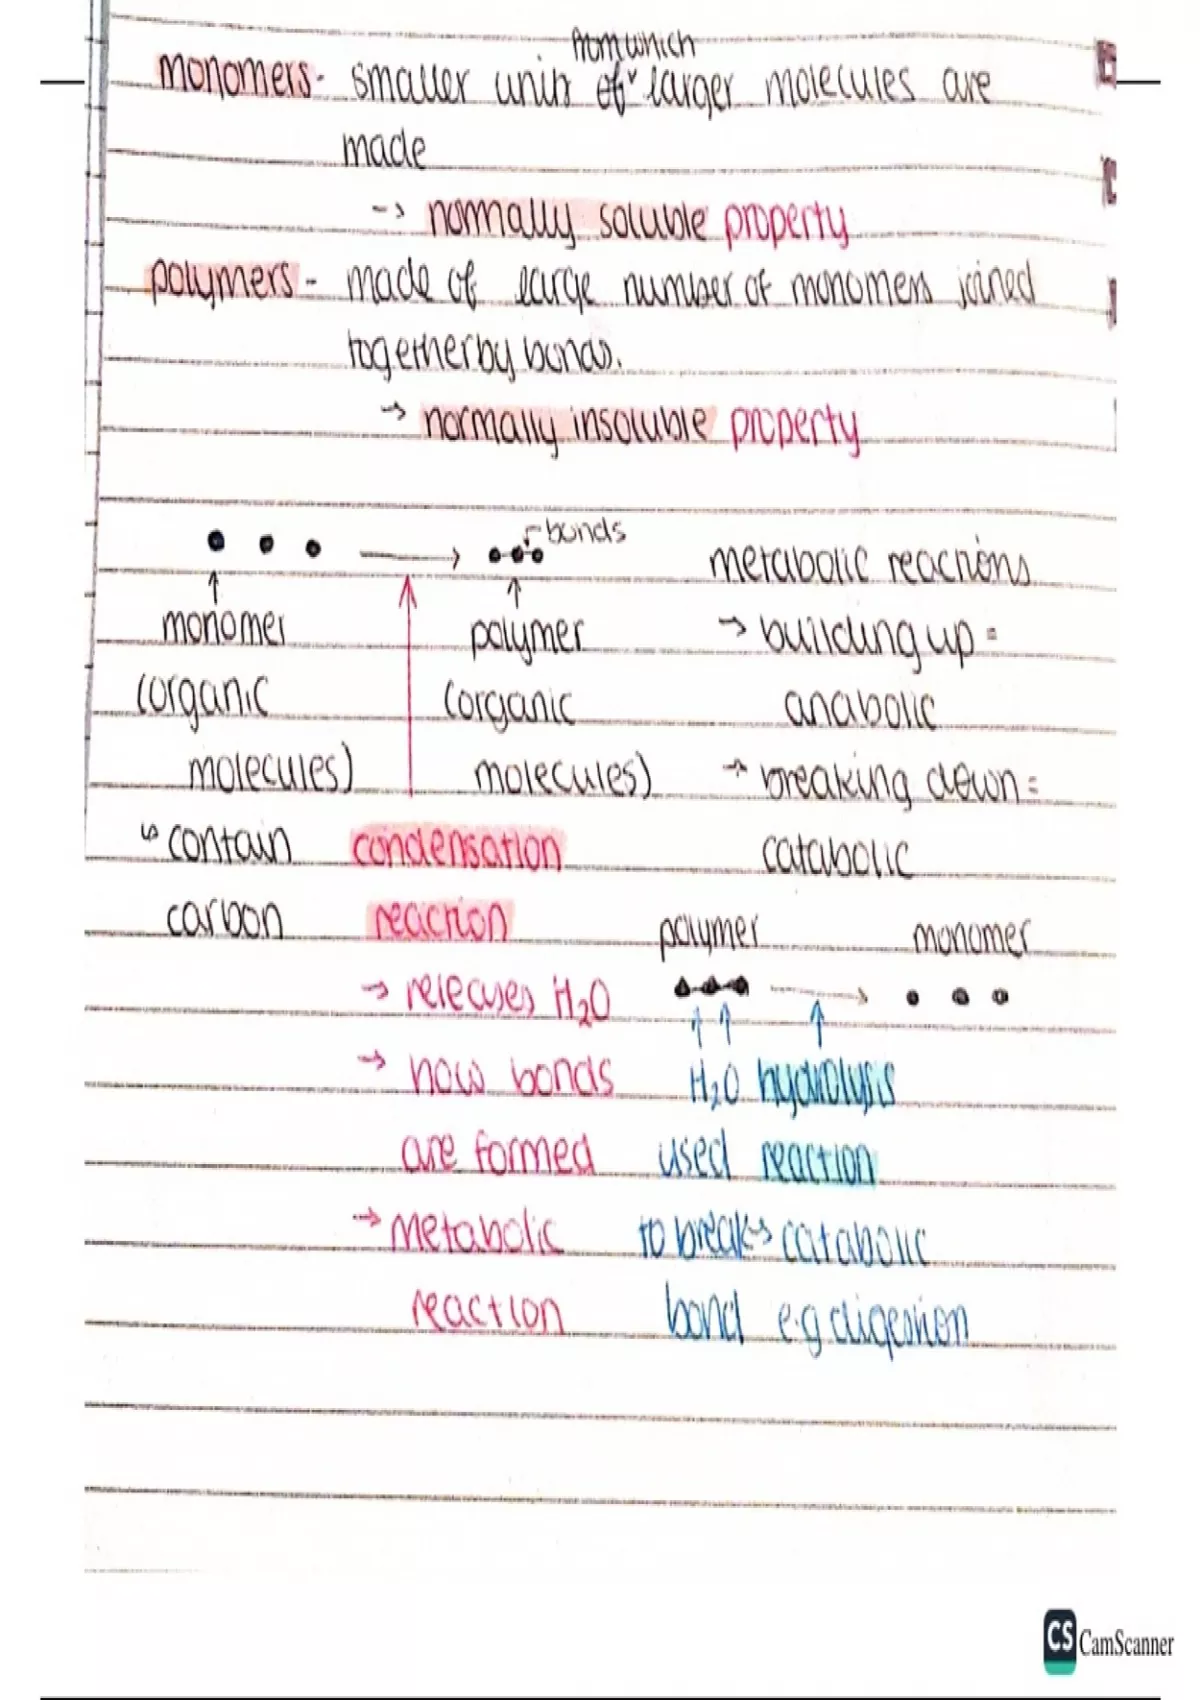 from which
monomers - smaller units of larger molecules are
made
-> normally soluble property
polymers - made of large number of monomers joined
together by bonds.
→ normally insoluble property
bonds
metabolic reactions
monomer
polymer
→ building up =
(organic
(organic
anabolic
molecules)
molecules)
→ breaking down =
↳ contain
condensation
catabolic
carbon
reaction
polymer
monomer
→ releases H₂O
→ how bonds
H₂O hydrolysis
are formed
used reaction
→ metabolic
to break → catabolic
reaction
bond e.g digestion
CS CamScanner